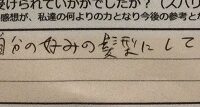 受けられていかがでしたか?（ズバリ
感想が、私達の何よりの力となり今後の参考と
自分の好みの髪型にして